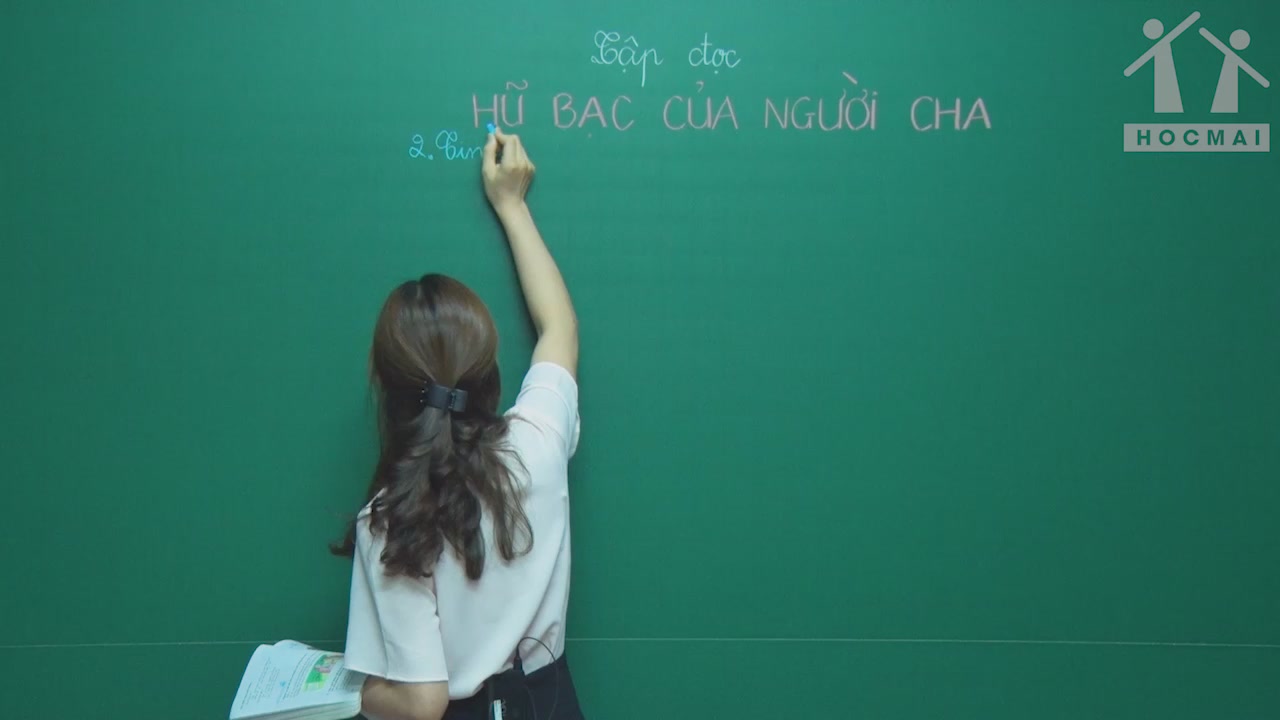 Tập đọc
HŨ BẠC CỦA NGƯỜI CHA
2.
HOCMAI